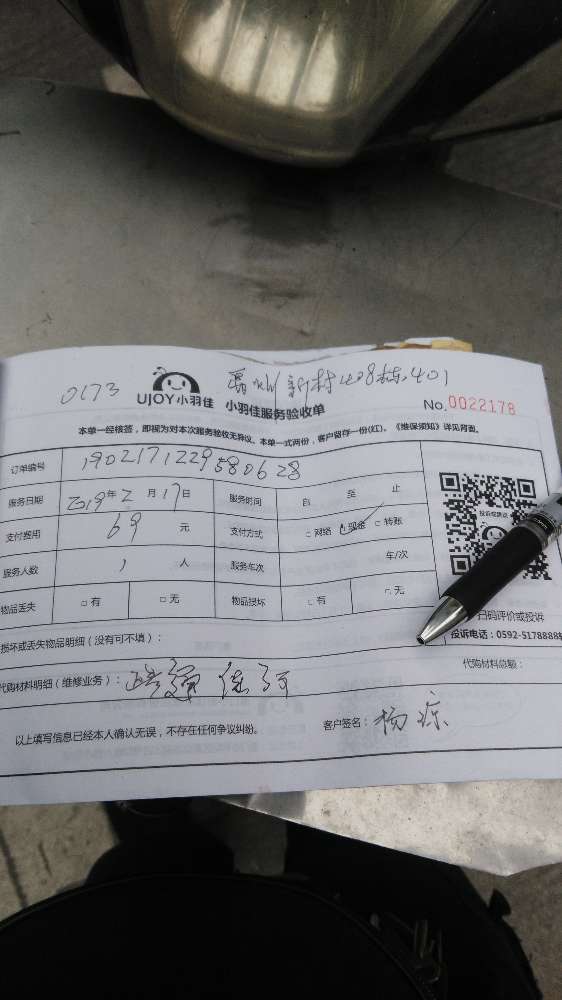 0173 新村408栋401
UJOY小羽佳 小羽佳服务验收单 No.0022178
本单一经核签，即视为对本次服务验收无异议。本单一式两份，客户留存一份(红)。《维保须知》详见背面。
订单编号 1902171229580628
服务日期 2019年2月17日 服务时间 自 至 止
支付费用 69 元 支付方式 □网络 □现金 □转账
服务人数 1 人 服务车次 车/次
物品丢失 □有 □无 物品损坏 □有 □无
投诉或建议
扫码评价或投诉
投诉电话：0592-5178888
损坏或丢失物品明细（没有可不填）：
代购材料总额：
代购材料明细（维修业务）：
以上填写信息已经本人确认无误，不存在任何争议纠纷。 客户签名：杨琼